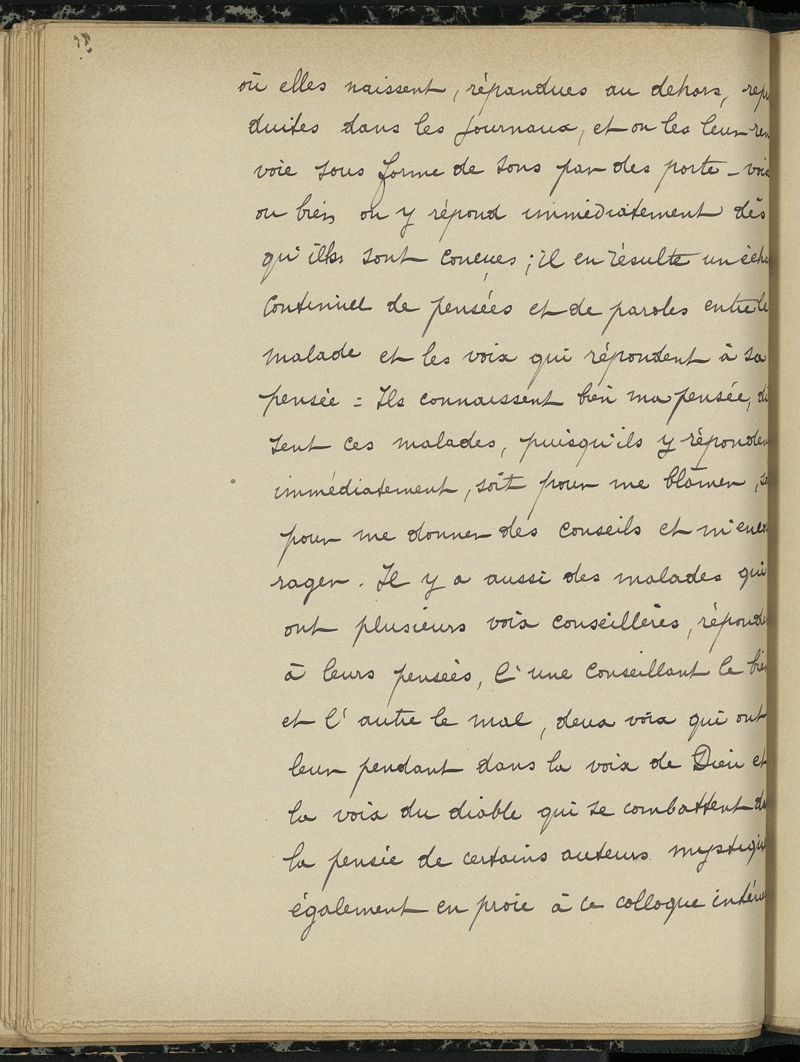 où elles naissent, répandues au dehors, repro
duites dans les journaux, et on les leur ren
voie sous forme de sons par des porte-voix
ou bien on y répond immédiatement dès
qu'elles sont conçues ; il en résulte un écho
continuel de pensées et de paroles entre le
malade et les voix qui répondent à sa
pensée = Ils connaissent bien ma pensée, di
sent ces malades, puisqu'ils y réponden
immédiatement, soit pour me blâmer, so
pour me donner des conseils et m'encou
rager. Il y a aussi des malades qui
ont plusieurs voix conseillères, réponda
à leurs pensées, l'une conseillant le bien
et l'autre le mal, deux voix qui ont
leur pendant dans la voix de Dieu et
la voix du diable qui se combattent da
la pensée de certains auteurs mystiqu
également en proie à ce colloque intérieu